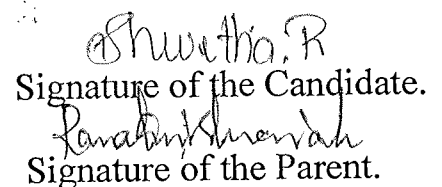 Shwetha.R
Signature of the Candidate.
Signature of the Parent.